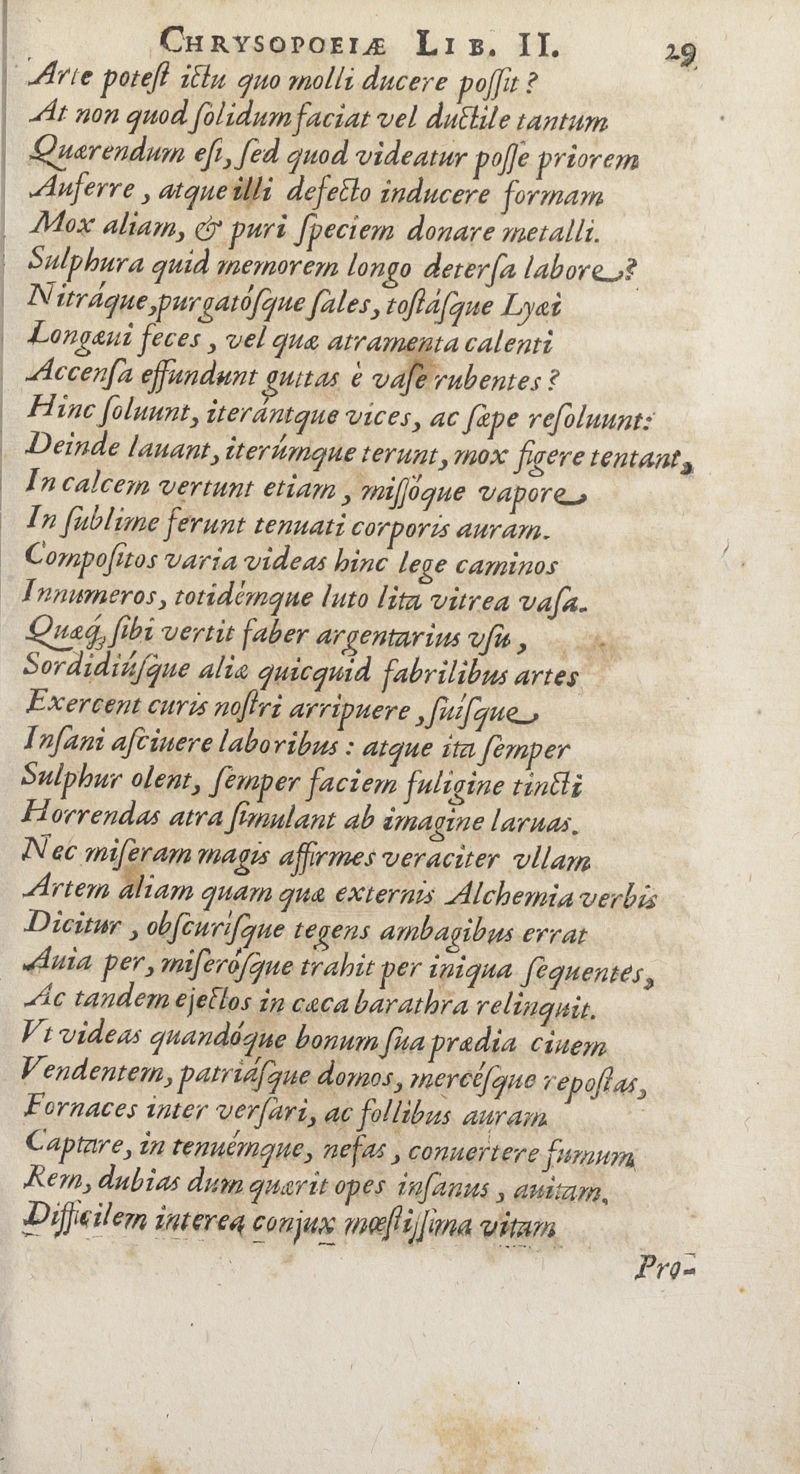 CHRYSOPOEIÆ LIB. II. 29
Arte potest ictu quo molli ducere possit?
At non quod solidum faciat vel ductile tantum
Quærendum est, sed quod videatur posse priorem
Auferre, atque illi defecto inducere formam
Mox aliam, & puri speciem donare metalli.
Sulphura quid memorem longo detersa labore?
Nitráque, purgatósque sales, tostásque Lyæi
Longæui feces, vel quæ atramenta calenti
Accensa effundunt guttas è vase rubentes?
Hinc soluunt, iterántque vices, ac sæpe resoluunt:
Deinde lauant, iterúmque terunt, mox figere tentant,
In calcem vertunt etiam, missóque vapore
In sublime ferunt tenuati corporis auram.
Compositos varia videas hinc lege caminos
Innumeros, totidémque luto lita vitrea vasa.
Quæq; sibi vertit faber argentarius vsu,
Sordidiúsque aliæ quicquid fabrilibus artes
Exercent curis nostri arripuere, suísque
Insani asciuere laboribus: atque ita semper
Sulphur olent, semper faciem fuligine tincti
Horrendas atra simulant ab imagine laruas.
Nec miseram magis affirmes veraciter vllam
Artem aliam quam quæ externis Alchemia verbis
Dicitur, obscurísque tegens ambagibus errat
Auia per, miserósque trahit per iniqua sequentes,
Ac tandem ejectos in cæca barathra relinquit.
Vt videas quandóque bonum sua prædia ciuem
Vendentem, patriásque domos, mercésque repostas,
Fornaces inter versari, ac follibus auram
Captare, in tenuémque, nefas, conuertere fumum
Rem, dubias dum quærit opes insanus, auitam.
Difficilem interea conjux mœstissima vitam
Pro-